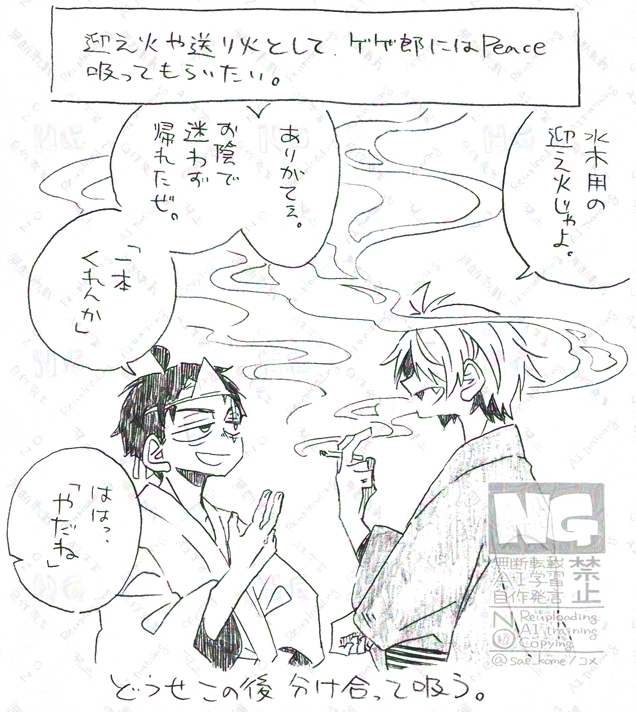 迎え火や送り火として、ゲゲ郎にはPeace
吸ってもらいたい。
水木用の
迎え火じゃよ。
ありがてぇ。
お陰で
迷わず
帰れたぜ。
「一本
くれんか」
ははっ、
「やだね」
NG
無断転載
AI学習
自作発言
禁止
NO
Reuploading
AI training
Copying
@sae_kome/コメ
どうせこの後 分け合って吸う。